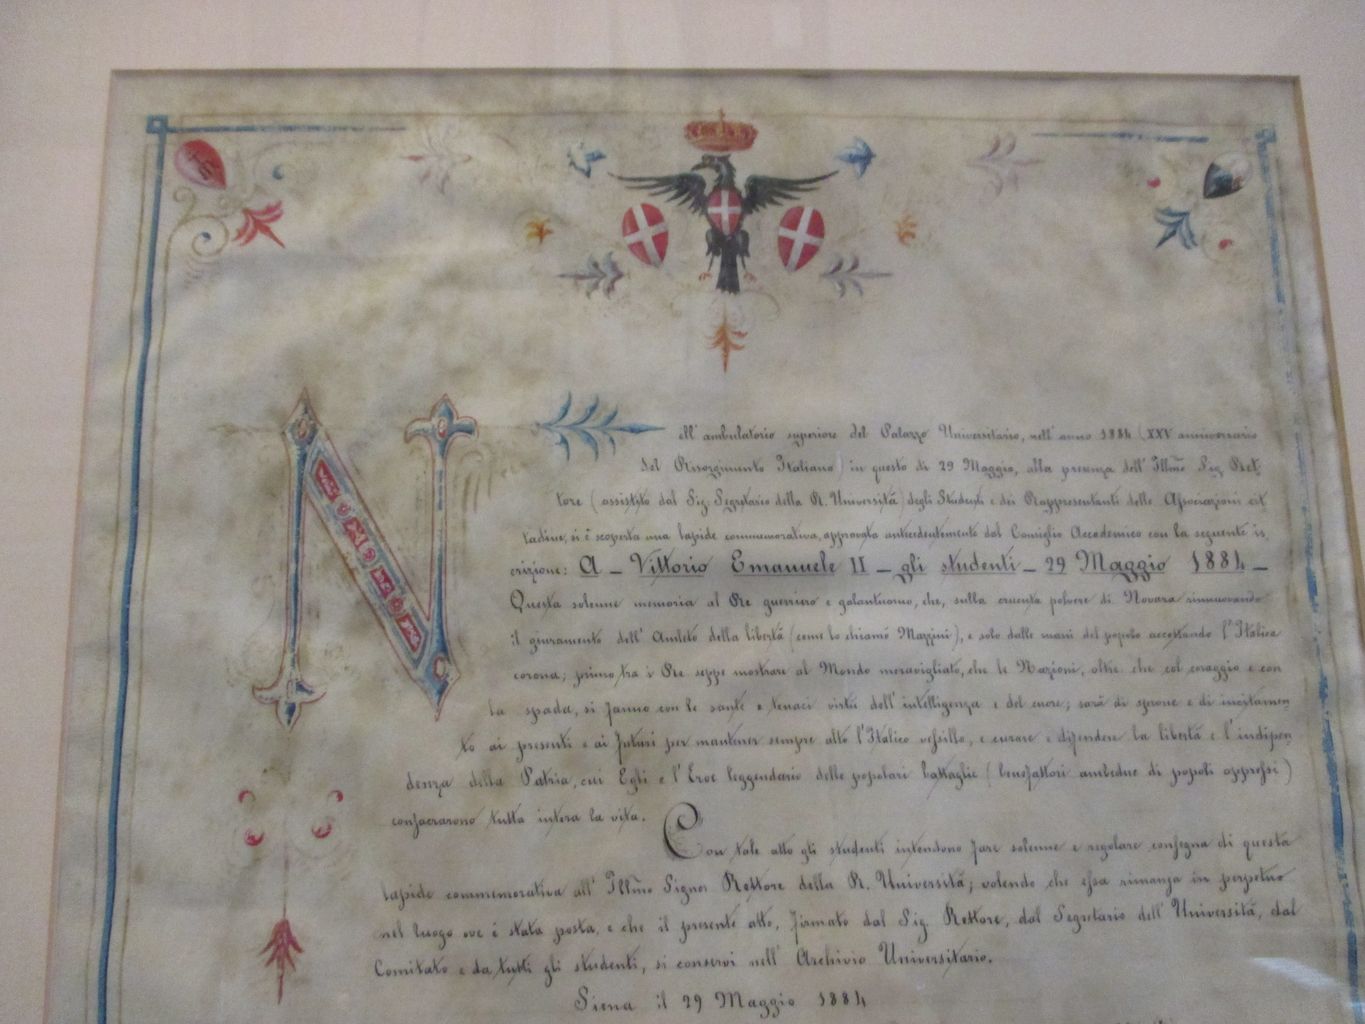 Nell' ambulatorio superiore del Palazzo Universitario, nell' anno 1884 (XXV anniversario
del Risorgimento Italiano) in questo dì 29 Maggio, alla presenza dell' Illmo Sig. Ret-
tore (assistito dal Sig. Segretario della R. Università) degli Studenti e dei Rappresentanti delle Associazioni cit
tadine, si è scoperta una lapide commemorativa, approvata antecedentemente dal Consiglio Accademico con la seguente is
crizione: A – Vittorio Emanuele II – gli studenti – 29 Maggio 1884 –
Questa solenne memoria al Re guerriero e galantuomo, che, sulla cruenta polvere di Novara rinnuovando
il giuramento dell' Amleto della libertà (come lo chiamò Mazzini), e solo dalle mani del popolo accettando l'Italica
corona; primo tra i Re seppe mostrare al Mondo meravigliato, che le Nazioni, oltre che col coraggio e con
la spada, si fanno con le sante e tenaci virtù dell' intelligenza e del cuore; sarà di sprone e di incitamen
to ai presenti e ai futuri per mantener sempre alto l'Italico vessillo, e curare e difendere la libertà e l'indipen
denza della Patria, cui Egli e l'Eroe leggendario delle popolari battaglie (benefattori ambedue di popoli oppressi)
consacrarono tutta intera la vita.
Con tale atto gli studenti intendono fare solenne e regolare consegna di questa
lapide commemorativa all' Illmo Signor Rettore della R. Università; volendo che essa rimanga in perpetuo
nel luogo ove è stata posta, e che il presente atto, firmato dal Sig. Rettore, dal Segretario dell' Università, dal
Comitato e da tutti gli studenti, si conservi nell' Archivio Universitario.
Siena il 29 Maggio 1884